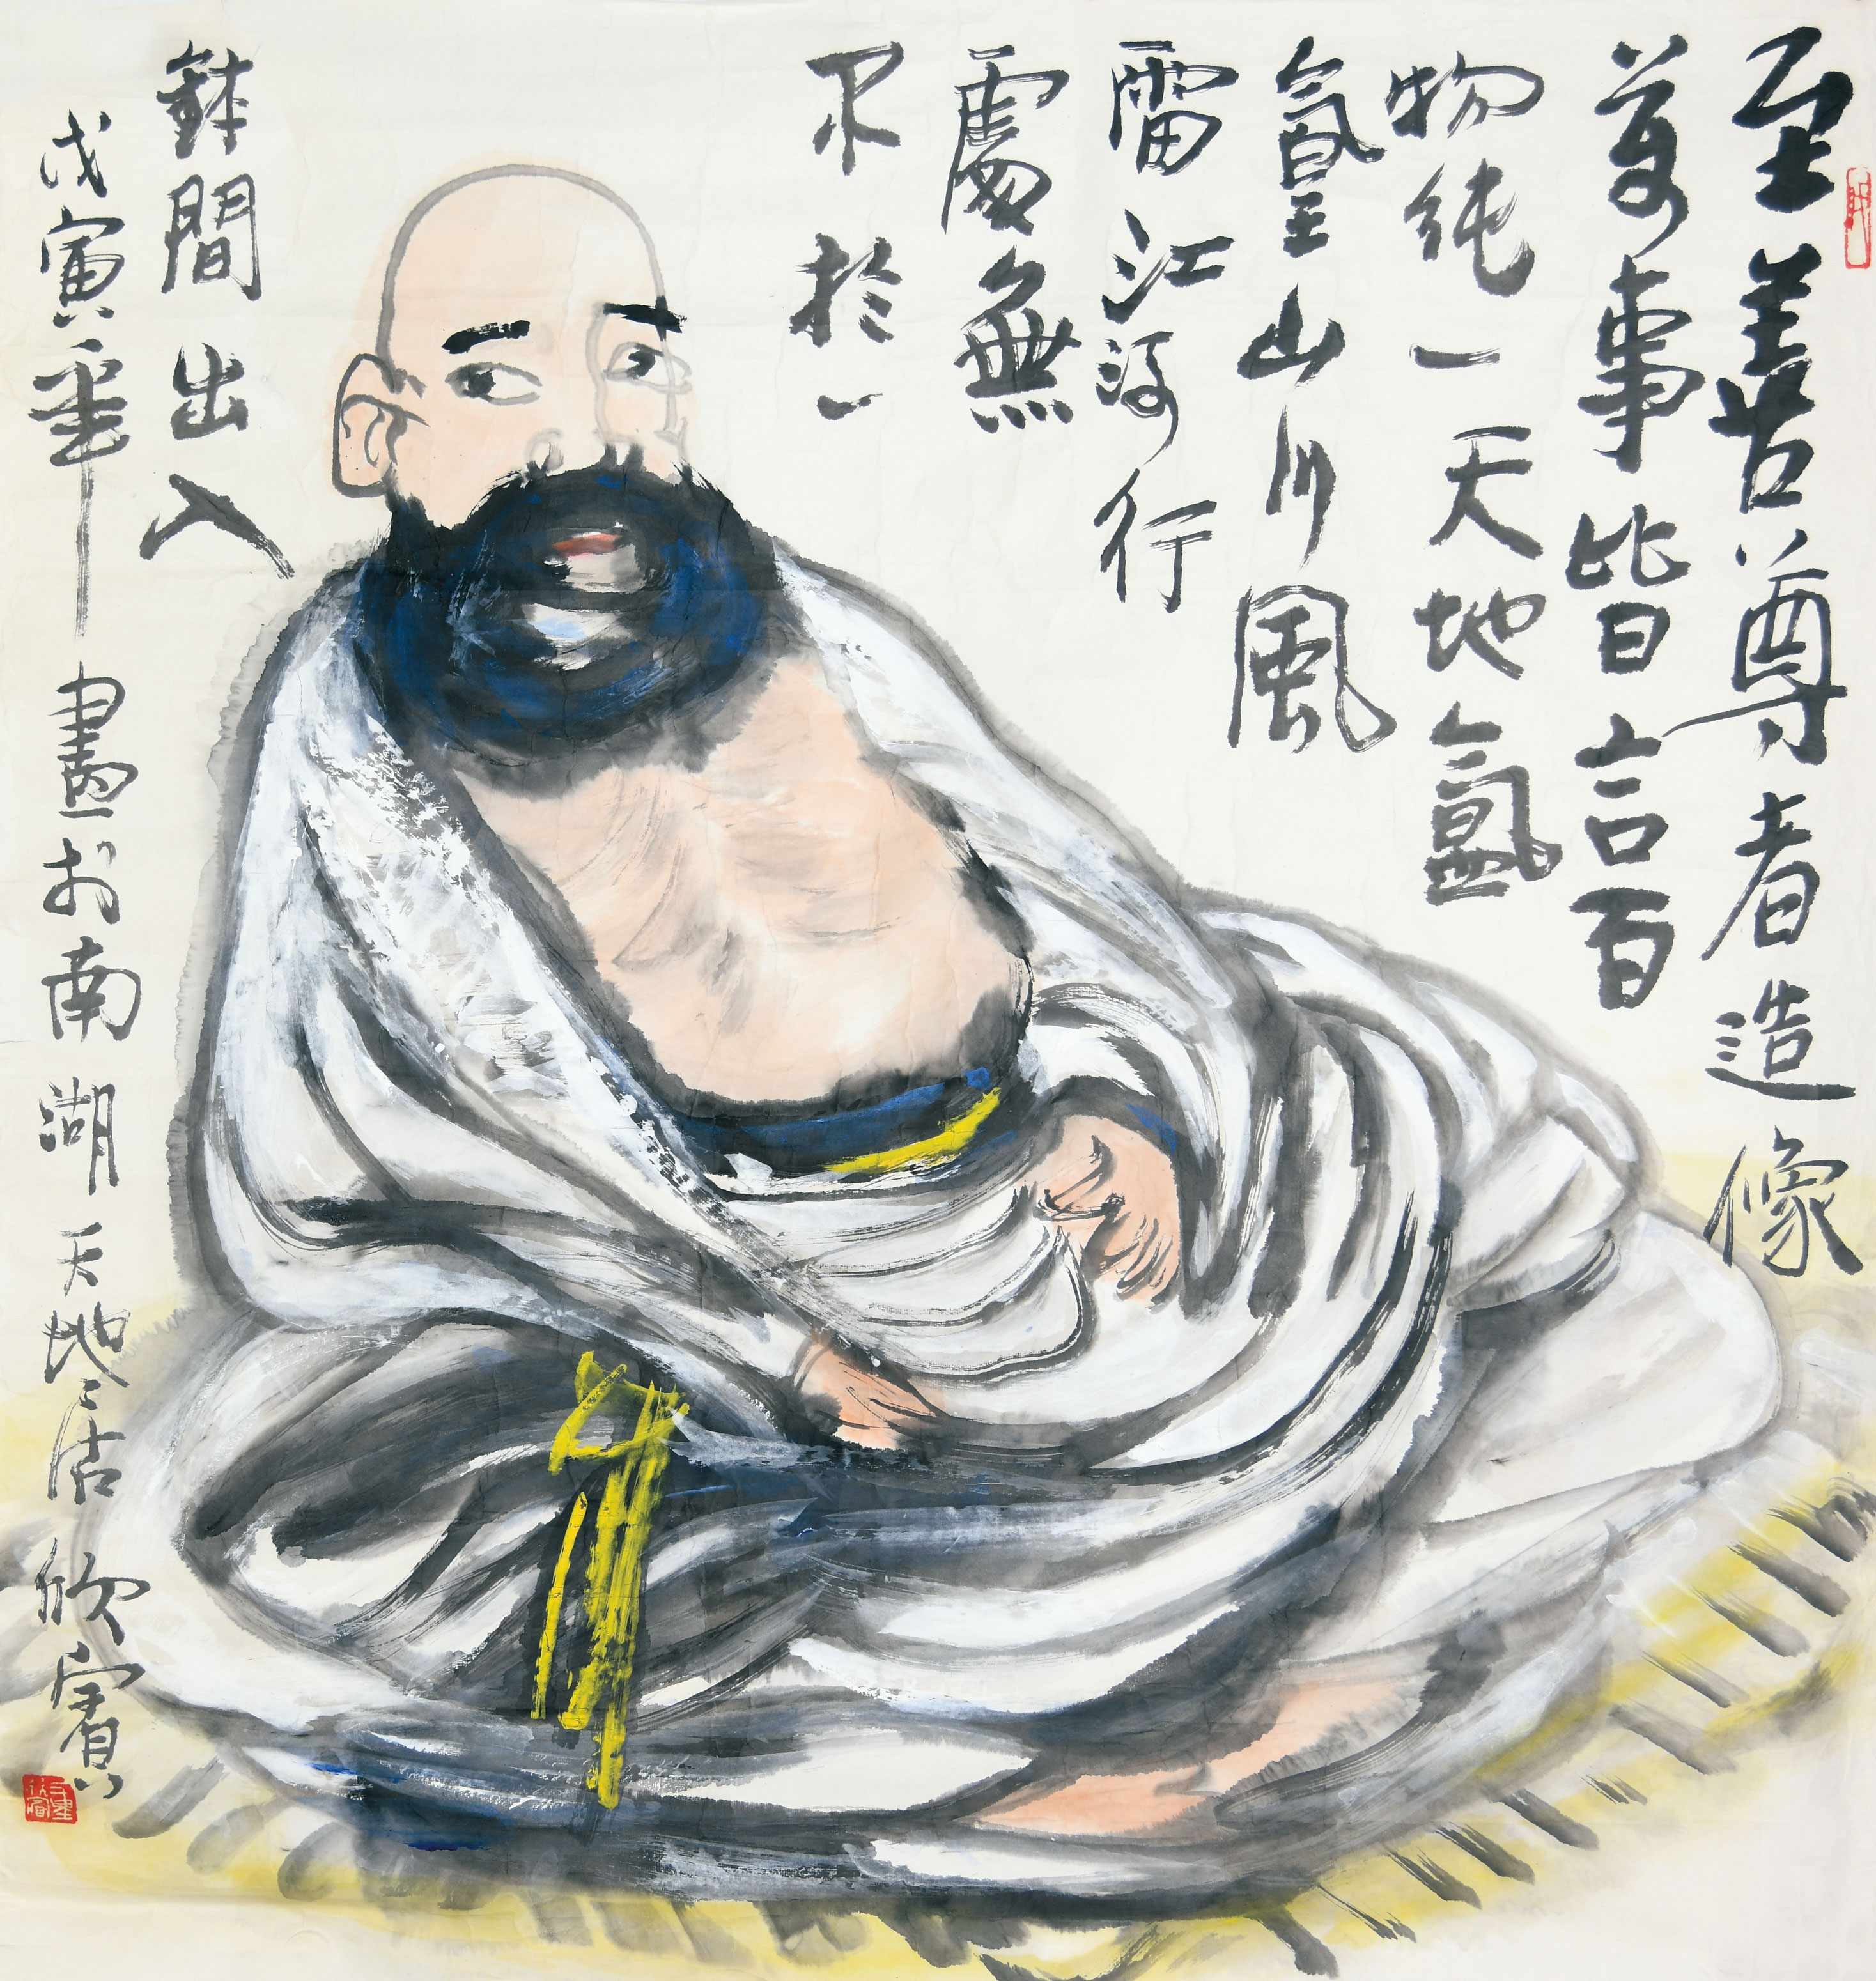 至善尊者造像
萬事皆言百
物純一天地氲
山川風
雷江河行
處無
不於一
鉢間出入
戊寅年畫於南湖天地居欣賓